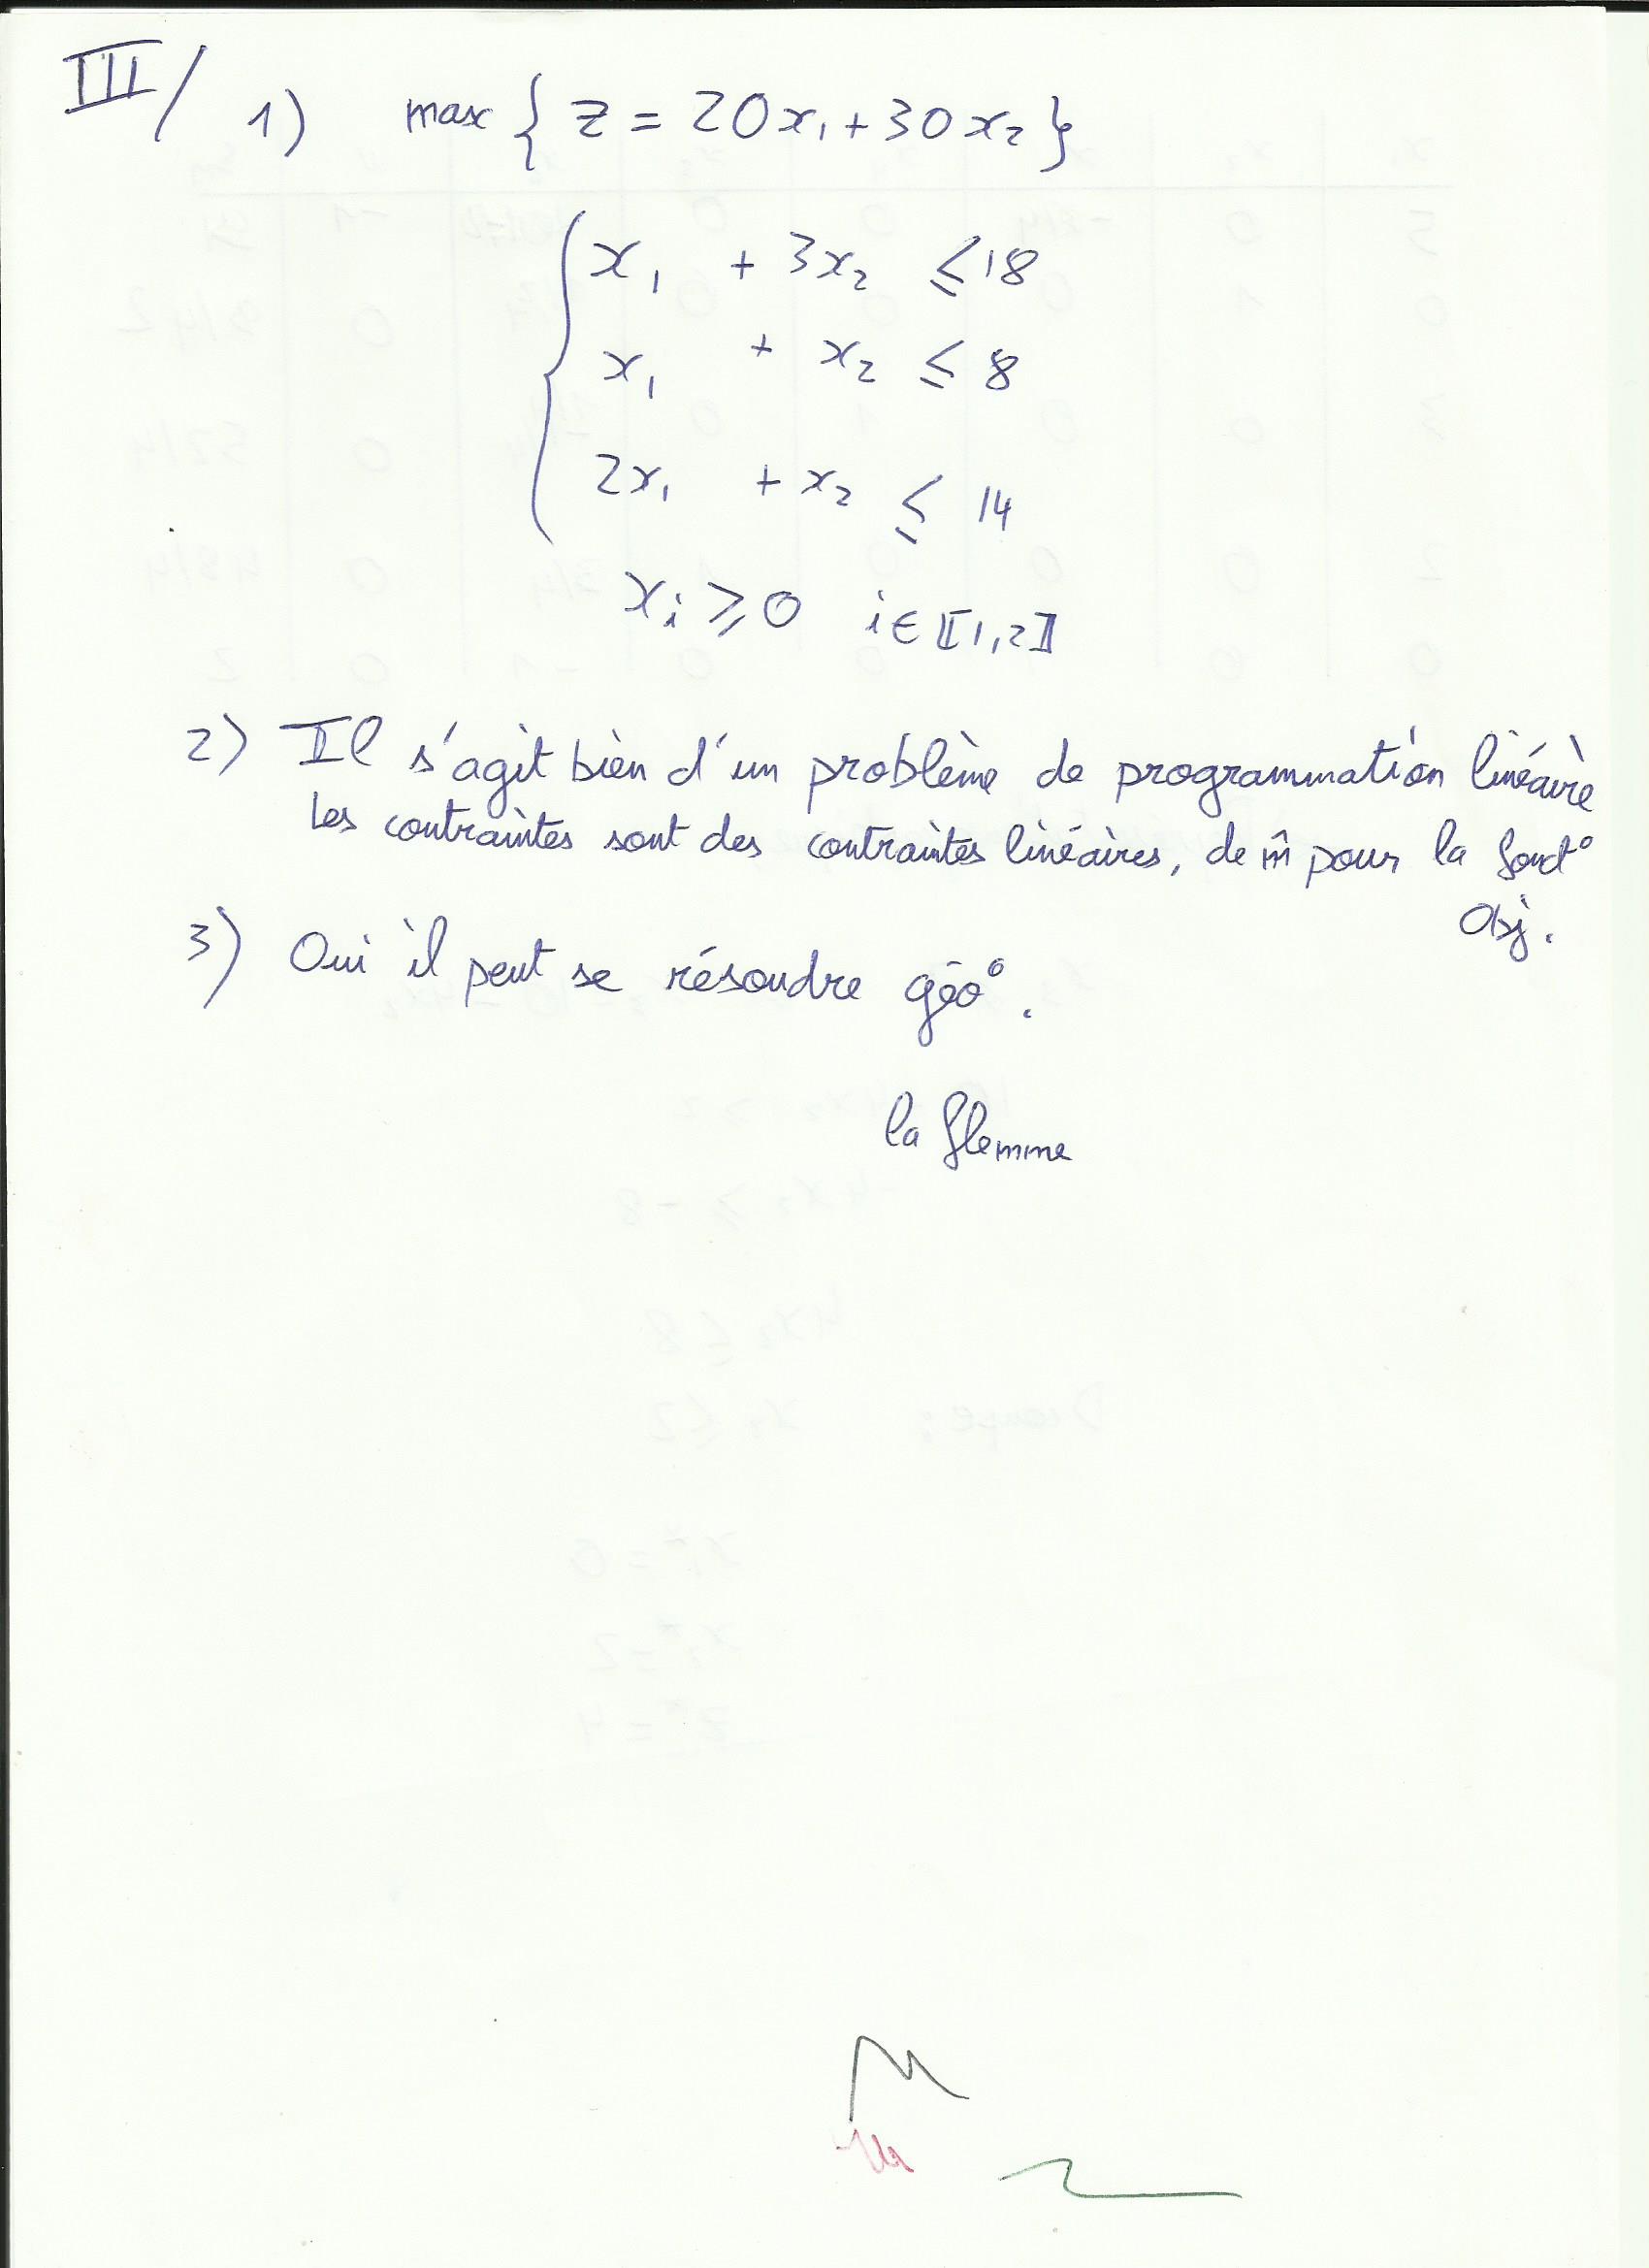 III/ 1) max { z = 20x₁ + 30x₂ }
x₁ + 3x₂ ≤ 18
x₁ + x₂ ≤ 8
2x₁ + x₂ ≤ 14
xᵢ ⩾ 0 i ∈ ⟦1,2⟧
2) Il s'agit bien d'un problème de programmation linéaire
Les contraintes sont des contraintes linéaires, de m̂ pour la fonct°
Obj.
3) Oui il peut se résoudre géo°.
la flemme